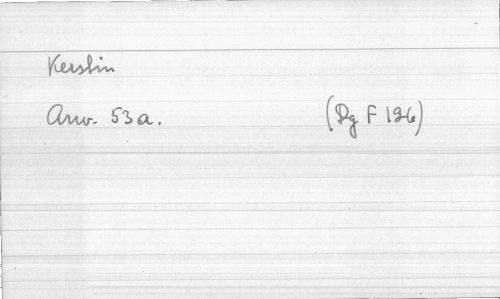 Kerstin
Arw. 53a. (Dg F 126)